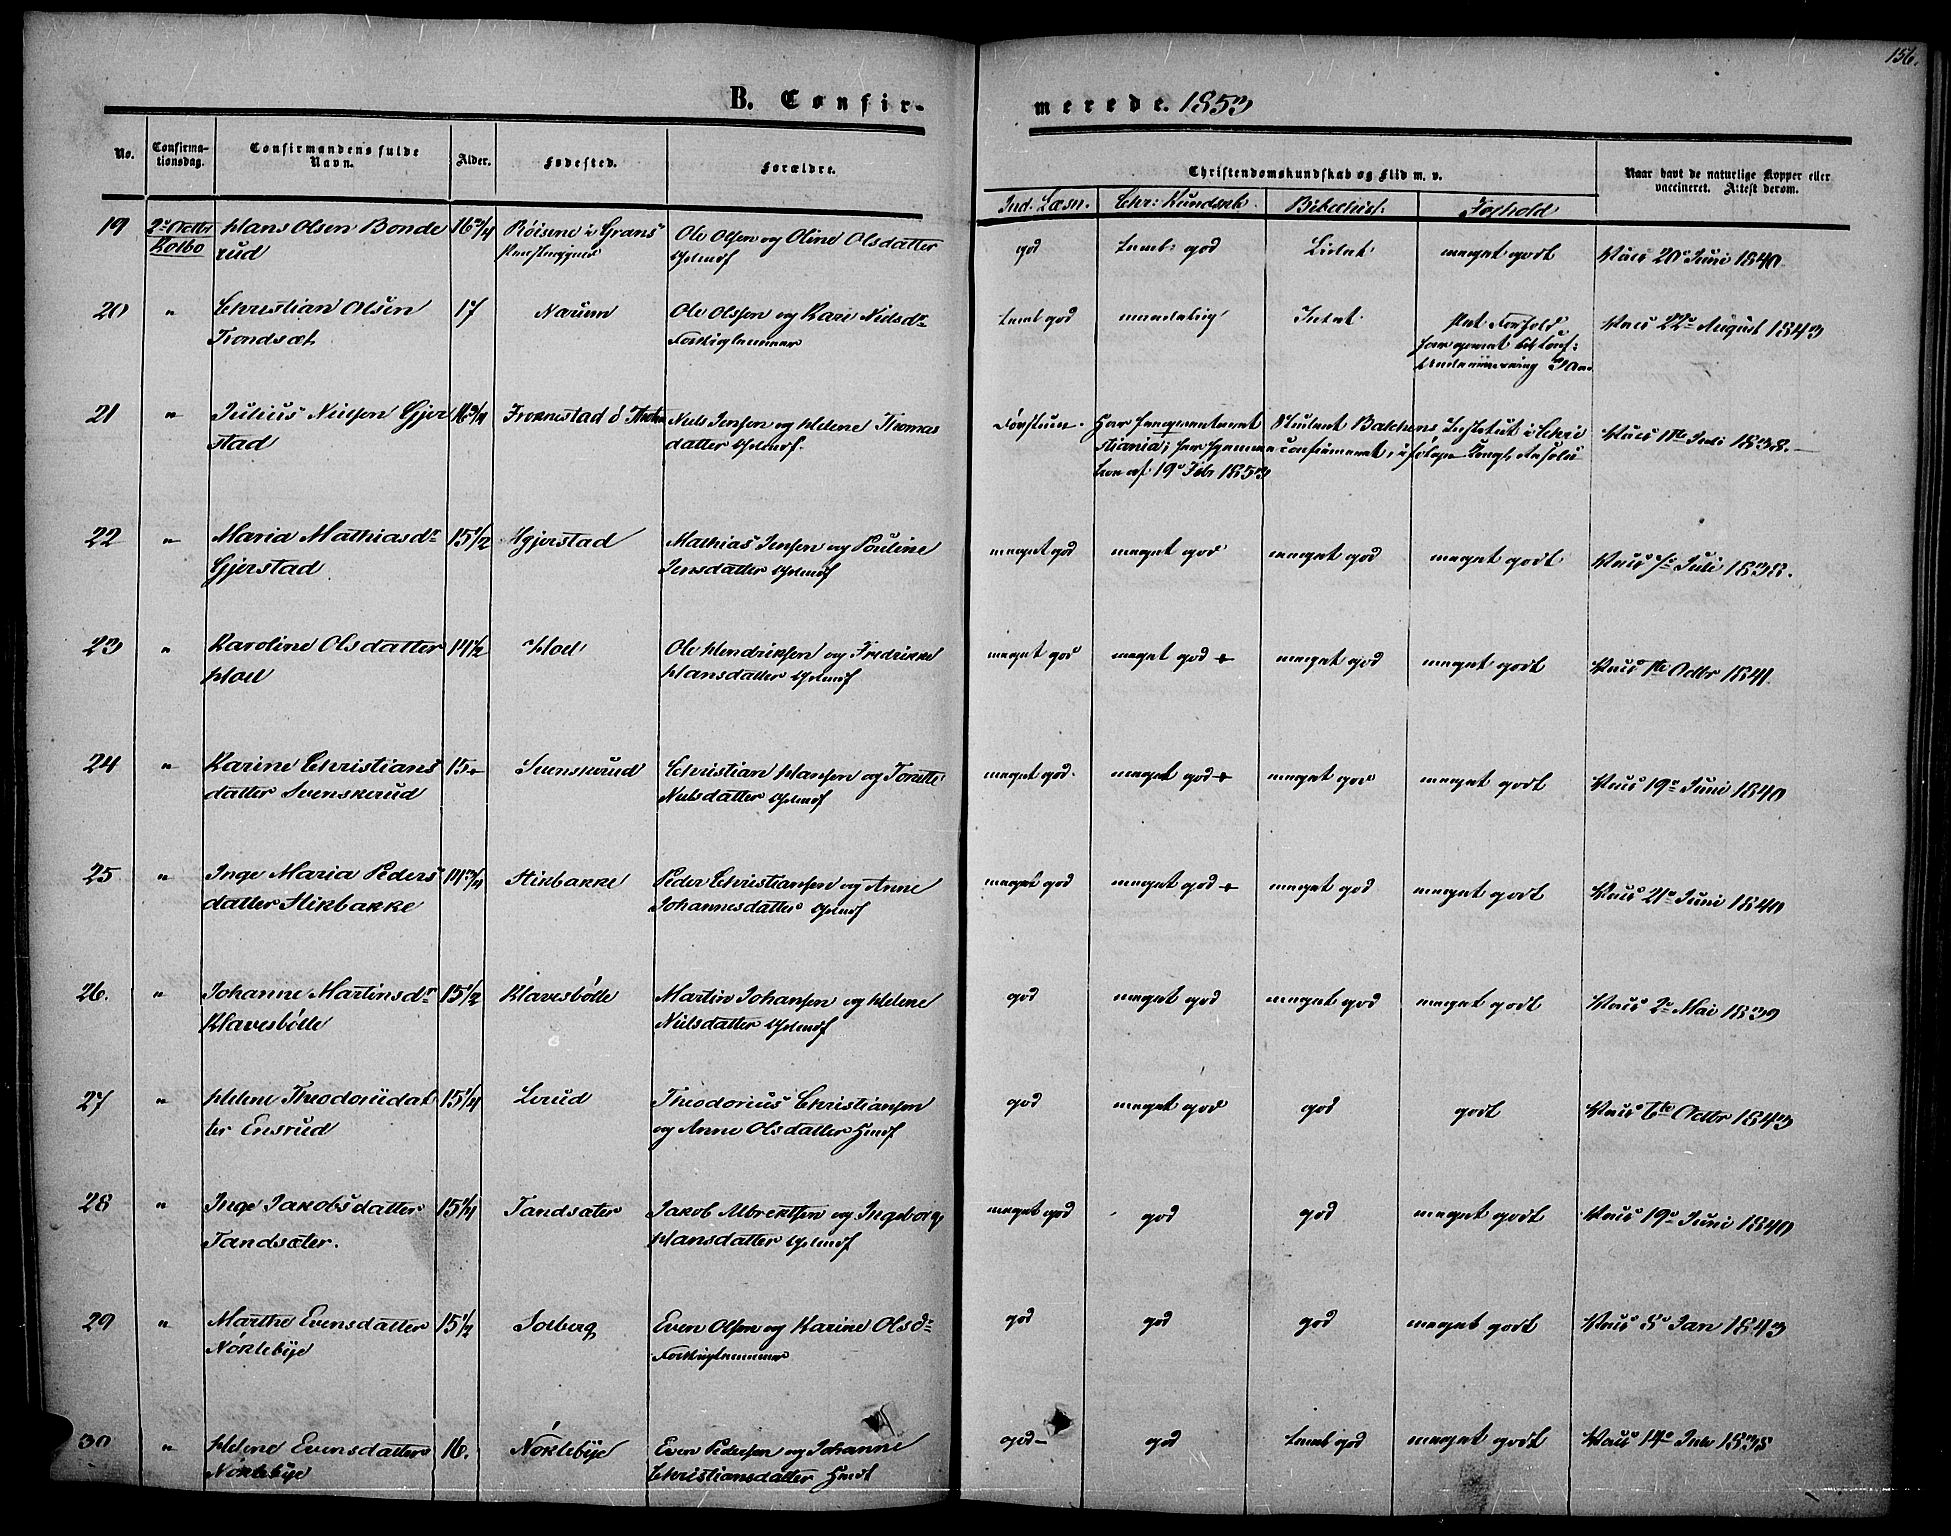 156.
B. Confir-
merede. 1853
No.
Confirma-
tionsdag.
Confirmandens fulde
Navn.
Alder.
Fødested.
Forældre.
Christendomskundskab og Flid m. v.
Naar havt de naturlige Kopper eller
vaccineret. Attest derom.
Ind. Læsn.
Chr: Kundsk.
Bibelhist:
Forhold
19
2n Octbr
Kolbo
Hans Olsen Bonde
rud
16 3/4
Røisene i Grans
Ole Olsen og Oline Olsdatter
god
Temml: god
Lidet
meget godt
Vacc 20de Juni 1840
20
"
Christian Olsen
Trondsæt
17
Narum
Ole Olssen og Kari Nielsdr
Teml god
maadelig
Lidet
Vacc 22de August 1843
21
"
Julius Nielsen Gjer
stad
16 3/4
Niels Jensen og Helene Thomas
datter Gjelmdf.
Har frequenteret Student Bakkens Institut i Chri
stiania; har hjemme confirmeret, ifølge Kongl. Resolu
tion af 19de Febr 1853
Vacc 1ste Juli 1838.
22
"
Maria Mathiasdr
Gjerstad
15 1/2
Gjerstad
Mathias Jensen og Pauline
Jensdatter Gjelmdf
meget god
meget god
meget god
meget godt
Vacc 7de Juli 1838.
23
"
Karoline Olsdatter
Hoel
14 1/2
Hoel
Ole Hendriksen og Fredrikke
Hansdatter Gjelmdf
meget god
meget god +
meget god
meget godt
Vacc 1ste Octbr 1841.
24
"
Karine Christians
datter Svenskerud
15
Svenskerud
Christian Hansen og Torette
Nielsdatter Gjelmdf
meget god.
meget god +
meget god
meget godt
Vacc 19de Juni 1840
25
"
Inge Maria Peders
datter Stikbakke
14 3/4
Stikbakke
Peder Christiansen og Anne
Johannesdatter Gjelmdf
meget god
meget god +
meget god
meget godt
Vacc 21de Juni 1840
26.
"
Johanne Martinsdr
Klavesbølle
15 1/2
Klavesbølle
Martin Johansen og Helene
Nielsdatter Gjelmdf
god
meget god
meget god
meget godt
Vacc 2de Mai 1839
27
"
Helene Theodorusdat
ter Ensrud
15 1/4
Lerud
Theodorius Christiansen
og Anne Olsdatter Hmdf
god
meget god
god
godt
Vacc 6te Octbr 1843
28
"
Inge Jakobsdatter
Tandsæter.
15 1/4
Tandsæter
Jakob Albrektsen og Ingeborg
Hansdatter Gjelmdf
meget god
god
god
meget godt
Vacc 19de Juni 1840
29
"
Marthe Evensdatter
Nøklebye
15 1/2
Solberg
Even Olsen og Karine Olsdr
god
god
god
meget godt
Vacc 8de Jan 1843
30
"
Helene Evensdatter
Nøklebye
16.
Nøklebye
Even Pedersen og Johanne
Christiansdatter Hmdf
god
god
Temml god
meget godt
Vacc 14de Juli 1838